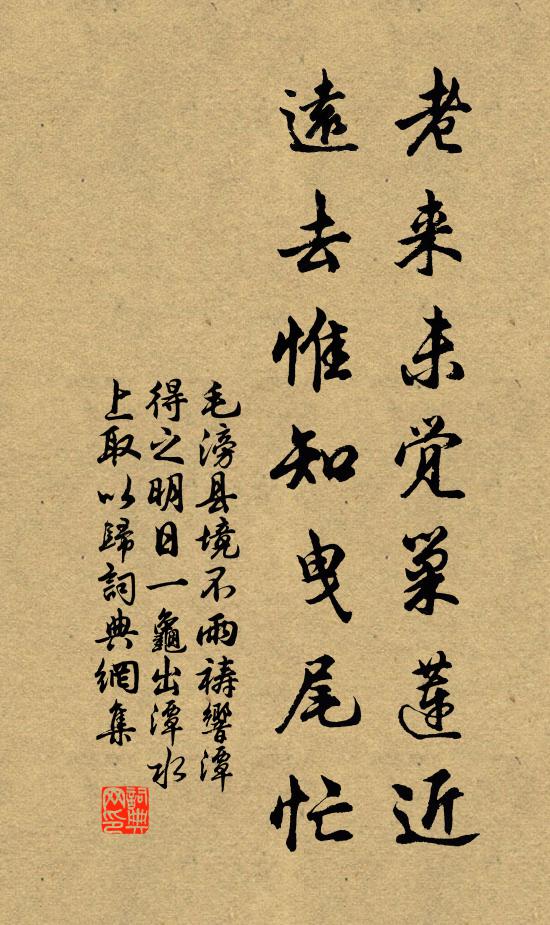 老来未覺巢蓮近
遠去惟知曳尾忙
毛滂县境不雨禱響潭
得之明日一龜出潭水
上取以歸詞典網集
詞典网印